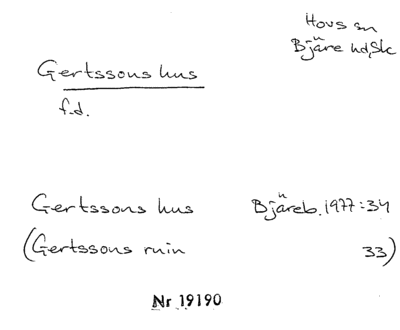 Hovs sn
Bjäre hd, Sk
Gertssons hus
f.d.
Gertssons hus Bjäreb. 1977:34
(Gertssons ruin 33)
Nr 19190